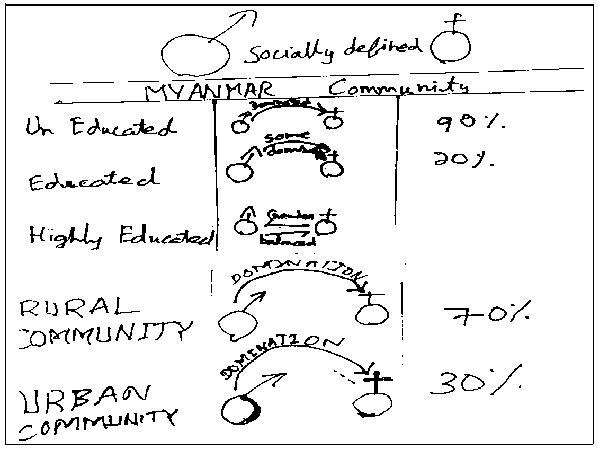 Socially defined
MYANMAR Community
Un Educated dominated 90%.
some
Educated domination 20%.
Highly Educated Gender balanced
DOMINATION
RURAL
COMMUNITY 70%.
DOMINATION
URBAN 30%.
COMMUNITY